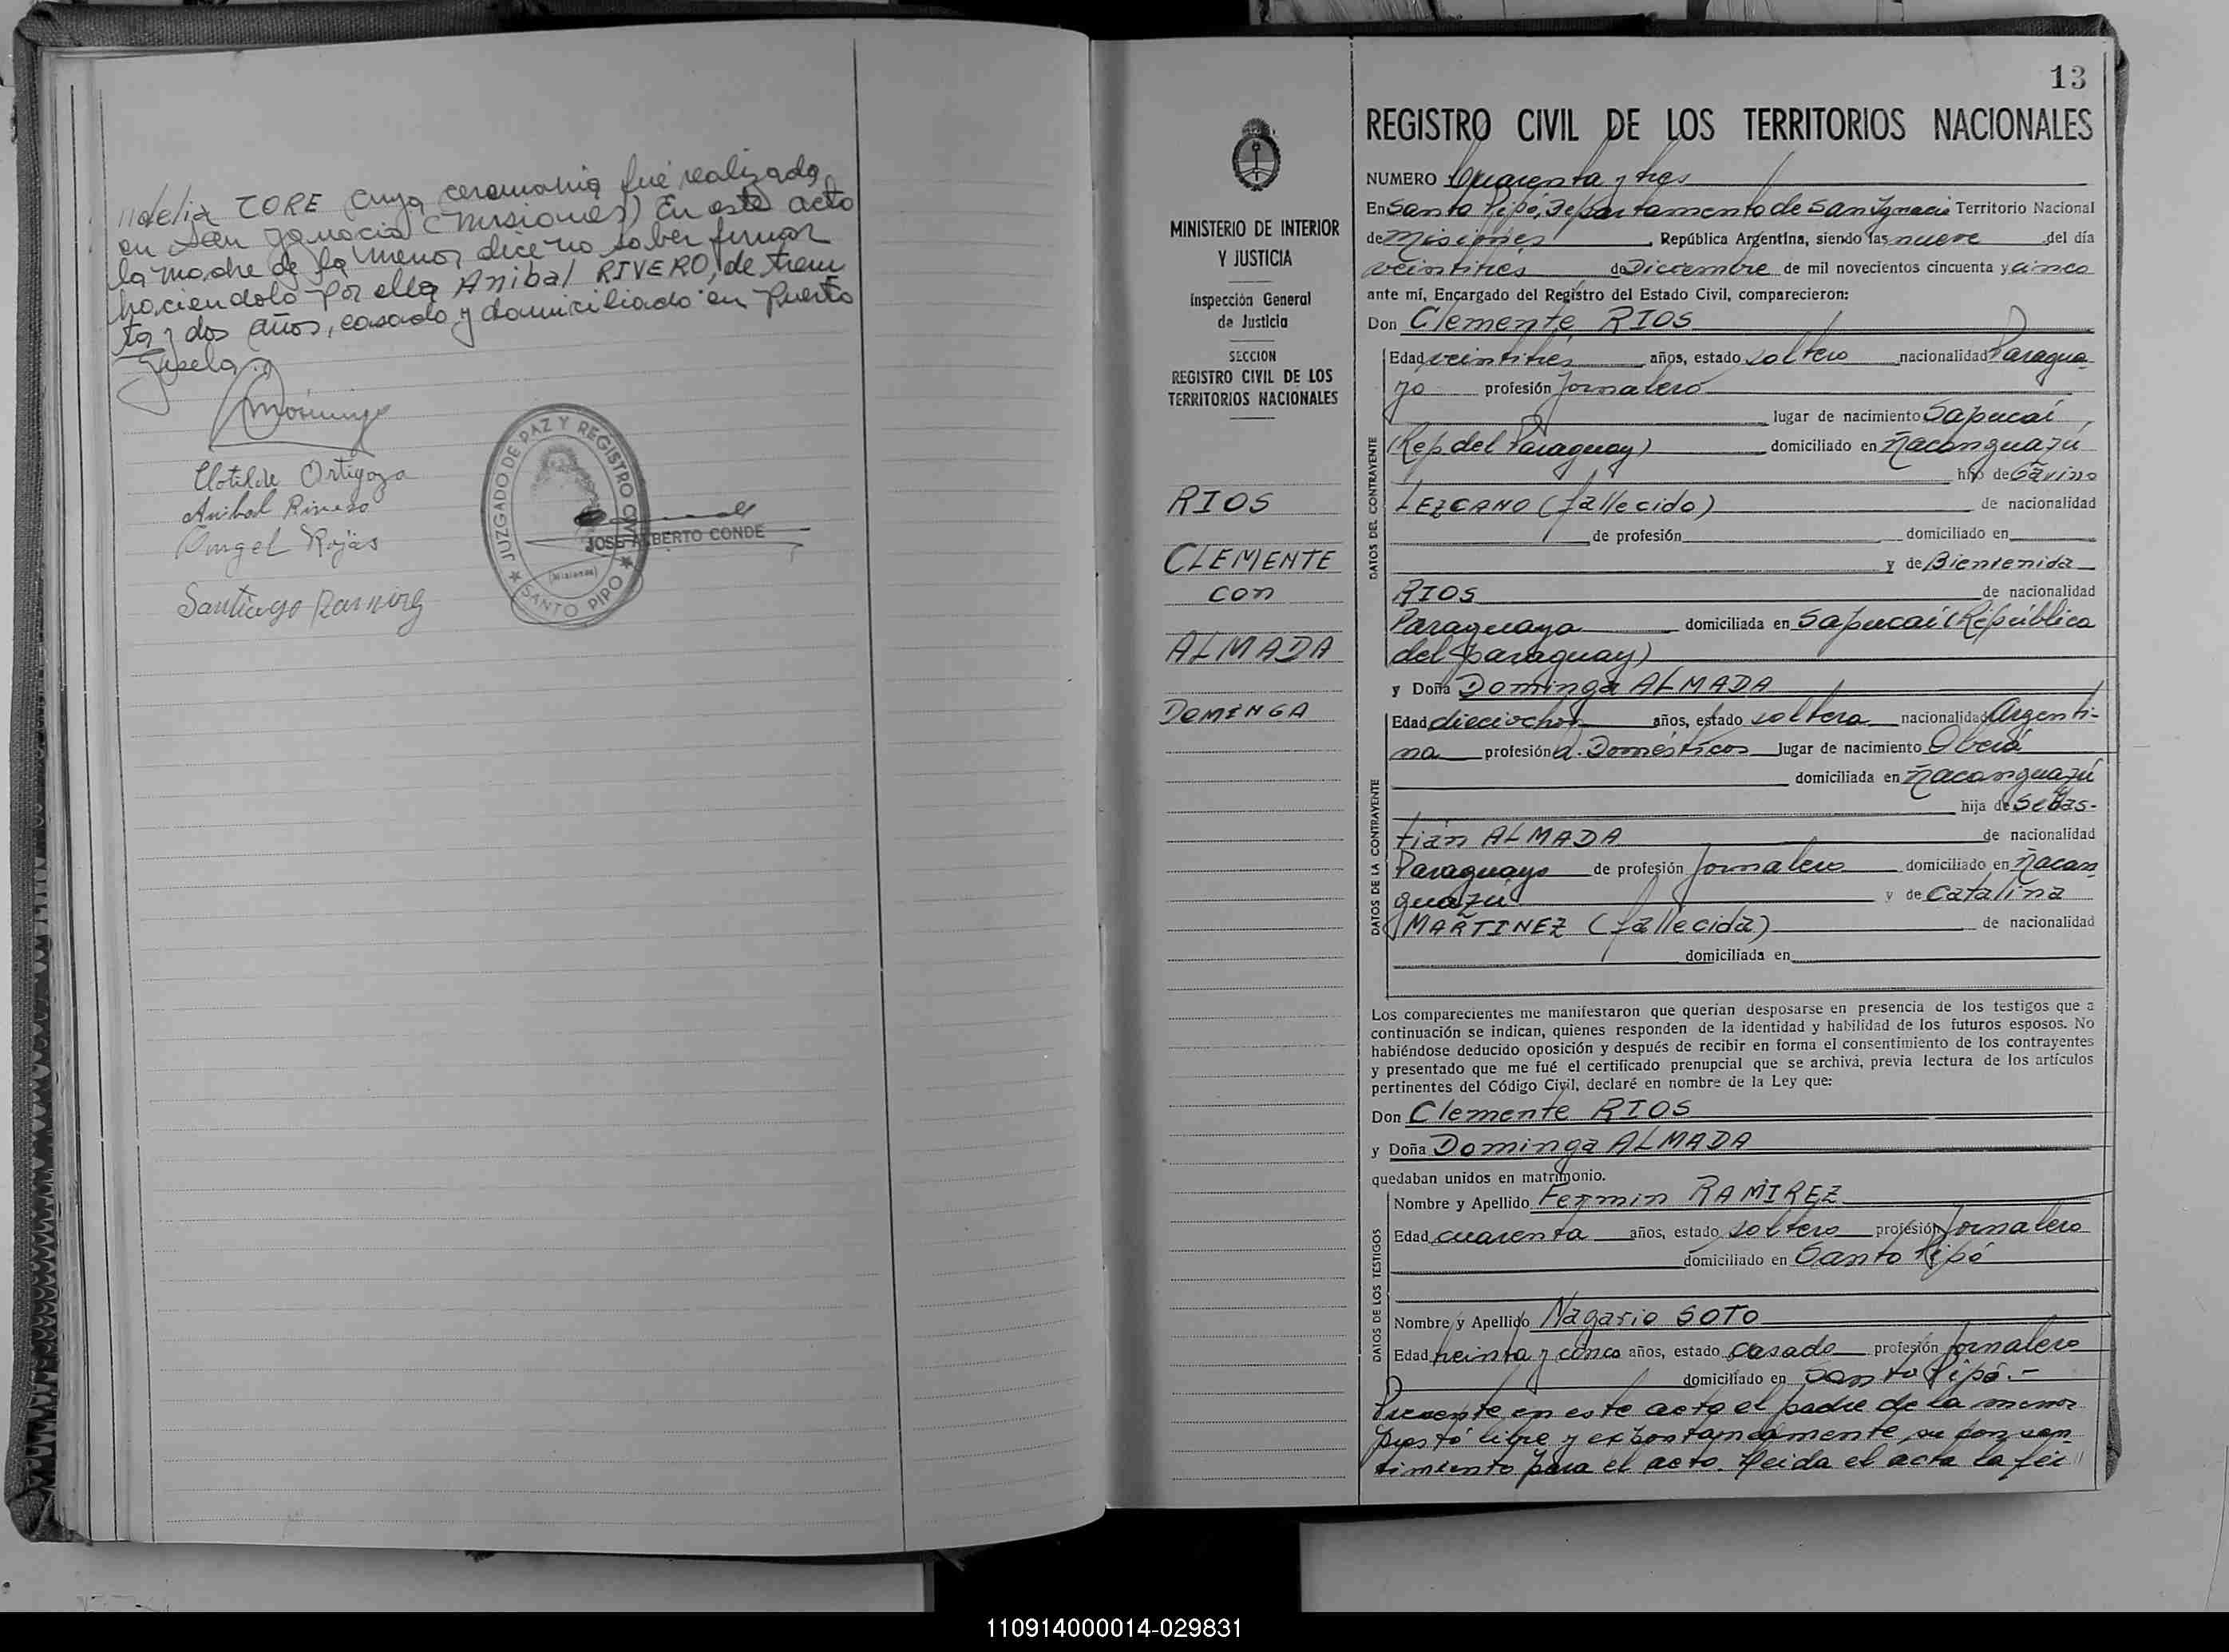 //delia TORE cuya ceremonia fué realizada
en San Ygnacio (Misiones) En este acto
la madre de la menor dice no saber firmar
haciendolo por ella Anibal RIVERO, de trein
ta y dos años, casado y domiciliado en Puerto
Gisela.
Clotilde Ortigoza
Anibal Rivero
Angel Rojas
Santiago Ramirez
JUZGADO DE PAZ Y REGISTRO CIVIL
(Misiones)
SANTO PIPO
JOSE ALBERTO CONDE
MINISTERIO DE INTERIOR
Y JUSTICIA
Inspección General
de Justicia
SECCION
REGISTRO CIVIL DE LOS
TERRITORIOS NACIONALES
RIOS
CLEMENTE
con
ALMADA
DOMINGA
13
REGISTRO CIVIL DE LOS TERRITORIOS NACIONALES
NUMERO Cuarenta y tres
En Santo Pipó, Departamento de San Ygnacio Territorio Nacional
de Misiones, República Argentina, siendo las nueve del día
veintitrés de Diciembre de mil novecientos cincuenta y cinco
ante mí, Encargado del Registro del Estado Civil, comparecieron:
Don Clemente RIOS
DATOS DEL CONTRAYENTE
Edad veintitrés años, estado soltero nacionalidad Paragua-
yo profesión Jornalero
lugar de nacimiento Sapucaí
(Rep del Paraguay) domiciliado en Ñacanguazú
hijo de Gavino
LEZCANO (fallecido) de nacionalidad
de profesión domiciliado en
y de Bienvenida
RIOS de nacionalidad
Paraguaya domiciliada en Sapucaí (República
del Paraguay)
y Doña Dominga ALMADA
DATOS DE LA CONTRAYENTE
Edad dieciocho años, estado soltera nacionalidad Argenti-
na profesión Q. Domésticos lugar de nacimiento Oberá
domiciliada en Ñacanguazú
hija de Sebas-
tián ALMADA de nacionalidad
Paraguayo de profesión Jornalero domiciliado en Ñacan
guazú y de Catalina
MARTINEZ (fallecida) de nacionalidad
domiciliada en
Los comparecientes me manifestaron que querían desposarse en presencia de los testigos que a
continuación se indican, quienes responden de la identidad y habilidad de los futuros esposos. No
habiéndose deducido oposición y después de recibir en forma el consentimiento de los contrayentes
y presentado que me fué el certificado prenupcial que se archiva, previa lectura de los artículos
pertinentes del Código Civil, declaré en nombre de la Ley que:
Don Clemente RIOS
y Doña Dominga ALMADA
quedaban unidos en matrimonio.
DATOS DE LOS TESTIGOS
Nombre y Apellido Fermin RAMIREZ
Edad cuarenta años, estado soltero profesión Jornalero
domiciliado en Santo Pipó
Nombre y Apellido Nagario SOTO
Edad treinta y cinco años, estado casado profesión Jornalero
domiciliado en Santo Pipó.-
Presente en este acto el padre de la menor
prestó libre y expontaneamente su consen-
timiento para el acto. Leida el acta la fir//
110914000014-029831